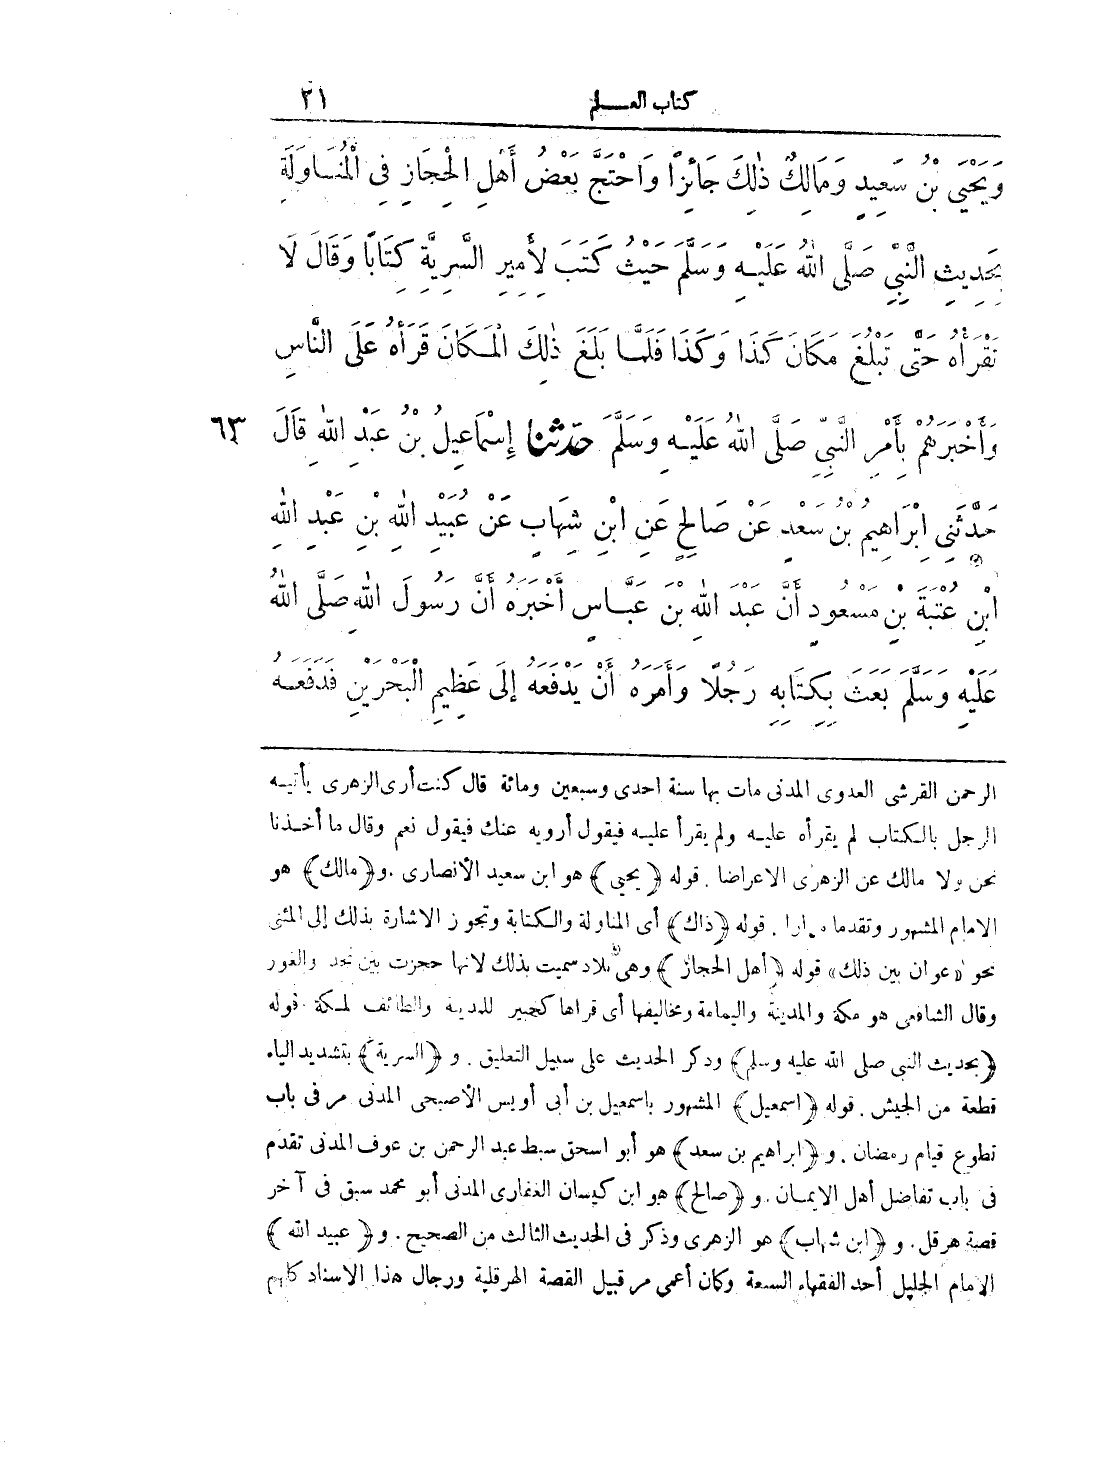 كتاب العلم ٢١
وَيَحْيَى بْنُ سَعِيدٍ وَمَالِكٌ ذٰلِكَ جَائِزًا وَاحْتَجَّ بَعْضُ أَهْلِ الْحِجَازِ فِي الْمُنَاوَلَةِ
بِحَدِيثِ النَّبِيِّ صَلَّى اللهُ عَلَيْهِ وَسَلَّمَ حَيْثُ كَتَبَ لِأَمِيرِ السَّرِيَّةِ كِتَابًا وَقَالَ لَا
تَقْرَأْهُ حَتَّى تَبْلُغَ مَكَانَ كَذَا وَكَذَا فَلَمَّا بَلَغَ ذٰلِكَ الْمَكَانَ قَرَأَهُ عَلَى النَّاسِ
وَأَخْبَرَهُمْ بِأَمْرِ النَّبِيِّ صَلَّى اللهُ عَلَيْهِ وَسَلَّمَ حدثنا إِسْمَاعِيلُ بْنُ عَبْدِ اللهِ قَالَ ٦٣
حَدَّثَنِي إِبْرَاهِيمُ بْنُ سَعْدٍ عَنْ صَالِحٍ عَنِ ابْنِ شِهَابٍ عَنْ عُبَيْدِ اللهِ بْنِ عَبْدِ اللهِ
ابْنِ عُتْبَةَ بْنِ مَسْعُودٍ أَنَّ عَبْدَ اللهِ بْنَ عَبَّاسٍ أَخْبَرَهُ أَنَّ رَسُولَ اللهِ صَلَّى اللهُ
عَلَيْهِ وَسَلَّمَ بَعَثَ بِكِتَابِهِ رَجُلًا وَأَمَرَهُ أَنْ يَدْفَعَهُ إِلَى عَظِيمِ الْبَحْرَيْنِ فَدَفَعَهُ
الرحمن القرشى العدوى المدنى مات بها سنة احدى وسبعين ومائة قال كنت أرى الزهرى يأتيه
الرجل بالكتاب لم يقرأه عليه ولم يقرأ عليه فيقول أرويه عنك فيقول نعم وقال ما أخذنا
نحن ولا مالك عن الزهرى الا عراضا . قوله ﴿يحيى﴾ هو ابن سعيد الأنصارى . و﴿مالك﴾ هو
الامام المشهور وتقدما مرارا . قوله ﴿ذاك﴾ أى المناولة والكتابة وتجوز الاشارة بذلك إلى المثنى
نحو «عوان بين ذلك» قوله ﴿أهل الحجاز﴾ وهى بلاد سميت بذلك لانها حجزت بين نجد والغور
وقال الشافعى هو مكة والمدينة واليمامة ومخاليفها أى قراها كخيبر للمدينة والطائف لمكة . قوله
﴿بحديث النبى صلى الله عليه وسلم﴾ وذكر الحديث على سبيل التعليق . و ﴿السرية﴾ بتشديد الياء
قطعة من الجيش . قوله ﴿اسمعيل﴾ المشهور باسمعيل بن أبى أويس الأصبحى المدنى مر فى باب
تطوع قيام رمضان . و ﴿ابراهيم بن سعد﴾ هو أبو اسحق سبط عبد الرحمن بن عوف المدنى تقدم
فى باب تفاضل أهل الايمان . و ﴿صالح﴾ هو ابن كيسان الغفارى المدنى أبو محمد سبق فى آخر
قصة هرقل . و ﴿ابن شهاب﴾ هو الزهرى وذكر فى الحديث الثالث من الصحيح . و ﴿عبيد الله﴾
الامام الجليل أحد الفقهاء السبعة وكان أعمى مر قبيل القصة الهرقلية ورجال هذا الاسناد كلهم